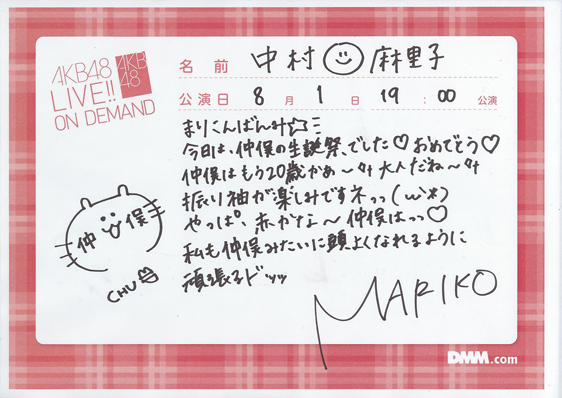 AKB48
LIVE!!
ON DEMAND
AKB
48
名前 中村 麻里子
公演日 8月1日 19:00 公演
まりこんばんみ☆ミ
今日は、仲俣の生誕祭、でした♡おめでとう♡
仲俣はもう20歳かぁ〜 大人だね〜
振り袖が楽しみですネっっ(ω)
やっぱ、赤かな〜仲俣はっっ♡
私も仲俣みたいに頭よくなれるように
頑張るドッッ
仲俣
CHU
MARIKO
DMM.com